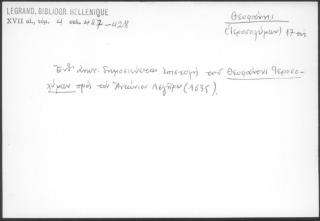 LEGRAND, BIBLIOGR. HELLENIQUE
XVII αἰ, τόμ. 4 σελ. 427-428
Θεοφάνης
(Ἱεροσολύμων) 17 αἰ.
Ἐνθ' ἀνωτ. δημοσιεύεται ἐπιστολὴ τοῦ Θεοφάνους Ἱεροσο-
λύμων πρὸς τὸν Ἀντώνιον Λεγὲρον (1635).